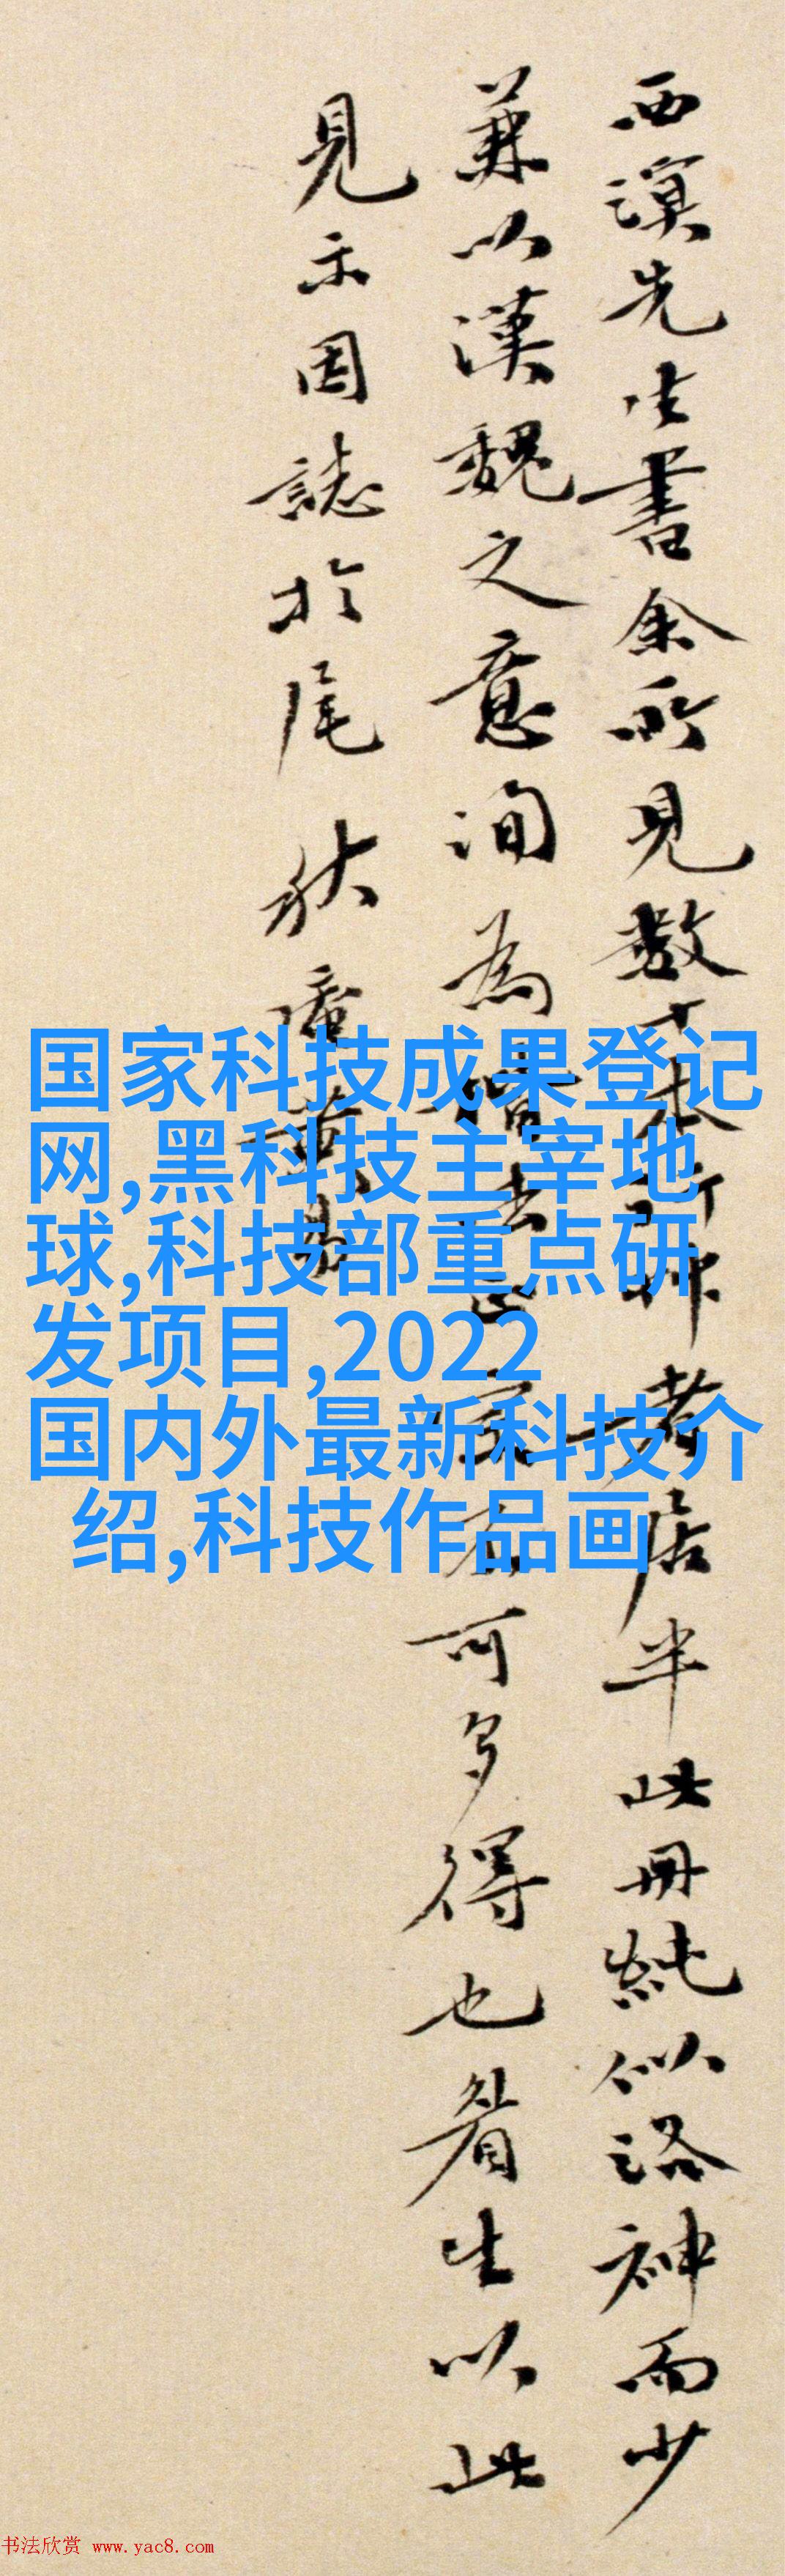 西溟先生書余所見數十本
考居半此冊純似洛神而少
兼以漢魏之意洵為
可多得也眉生以此
見示因誌於尾 秋盦黃易
国家科技成果登记
网,黑科技主宰地
球,科技部重点研
发项目,2022
国内外最新科技介
绍,科技作品画
书法欣赏 www.yac8.com